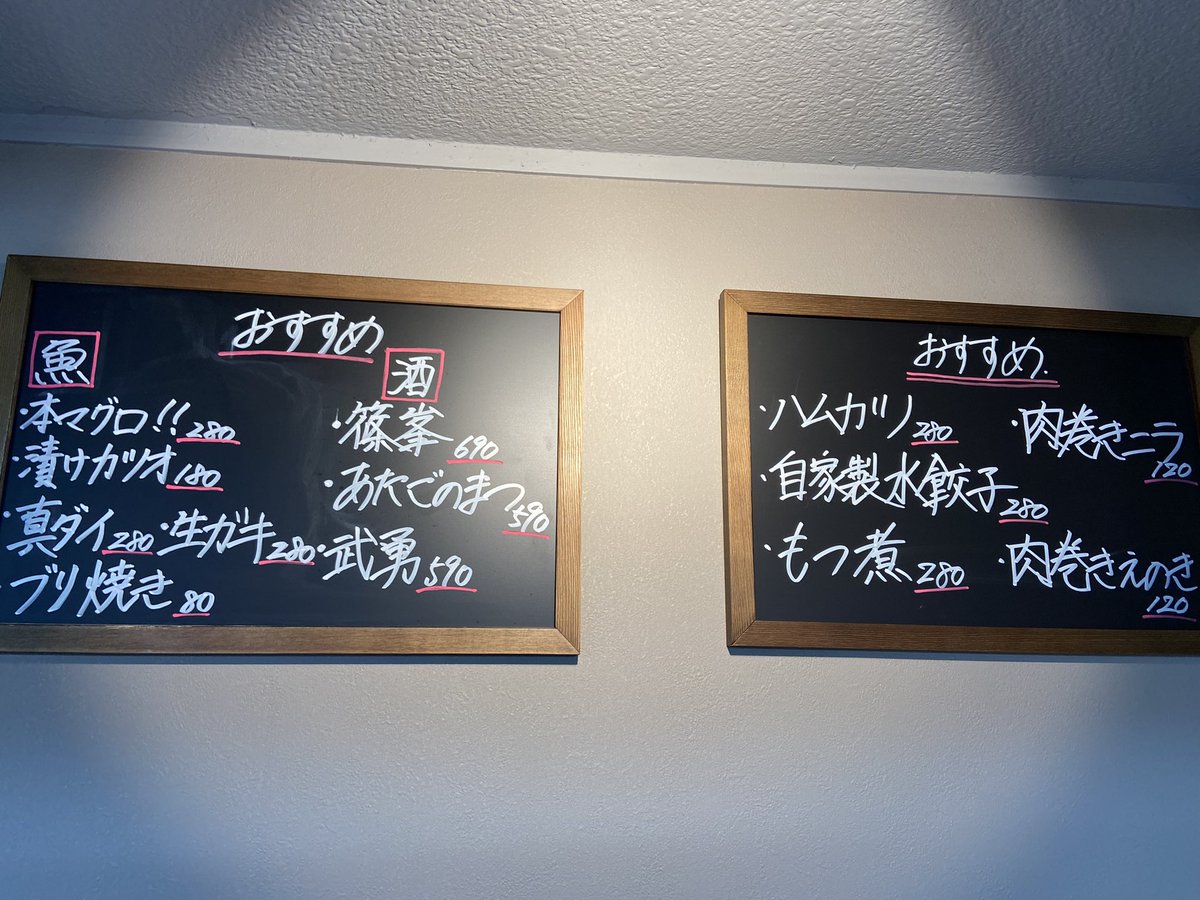 おすすめ
魚
・本マグロ!! 280
・漬けカツオ 180
・真ダイ 280 ・生ガキ 280
・ブリ焼き 80
酒
・篠峯 690
・あたごのまつ 590
・武勇 590
おすすめ.
・ハムカツ 280
・自家製水餃子 280
・もつ煮 280
・肉巻きニラ 120
・肉巻きえのき 120